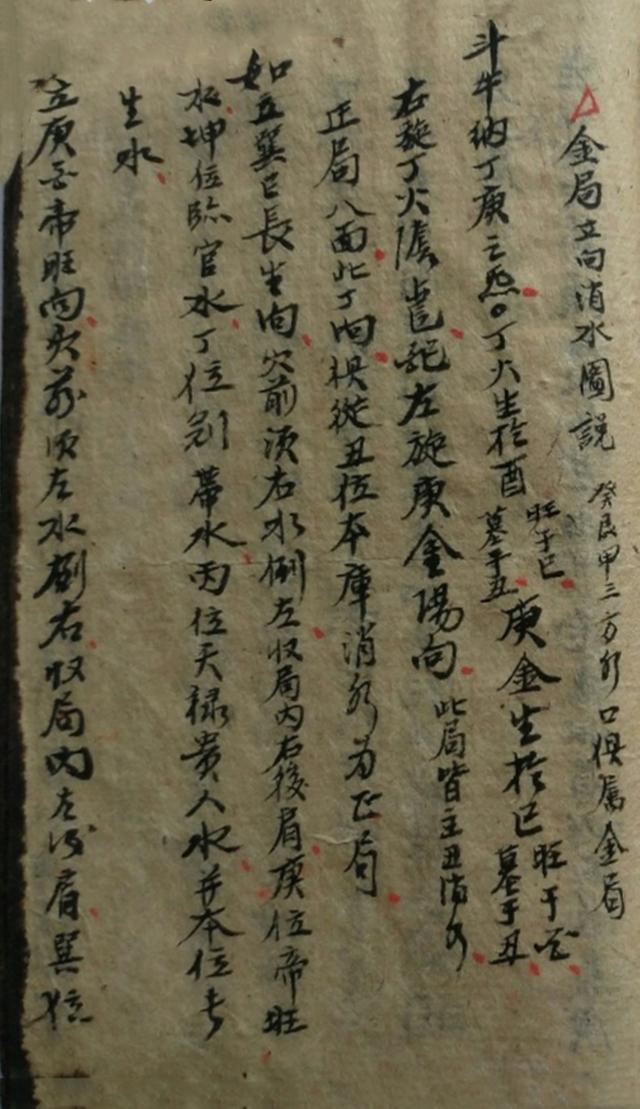 金局立向消水圖説 癸艮甲三方水口俱屬金局
斗牛納丁庚之炁。丁火生於酉 旺于巳 墓于丑 庚金生於巳 旺于酉 墓于丑
右旋丁火陰 左旋庚金陽向 此局皆主丑消水
正局八面此丁向俱從丑位本庫消水为正局
如立巽巳長生向穴前須右水倒左收局内右後肩庚位帝旺
水坤位臨官水丁位冠帶水丙位天祿贵人水并本位長
生水
立庚酉帝旺向穴前須左水倒右收局内左後肩巽位